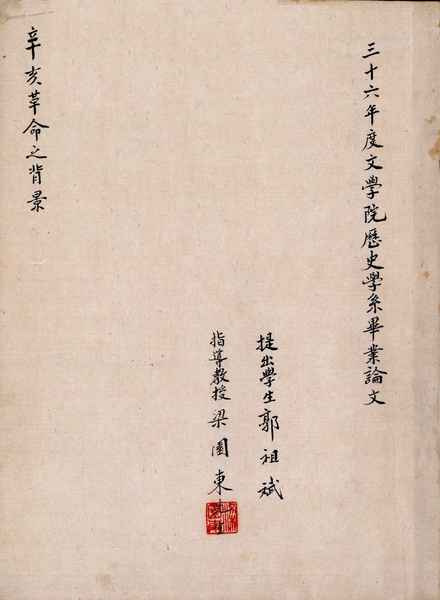 三十六年度文學院歷史學系畢業論文
提出學生郭祖斌
指導教授梁園東
辛亥革命之背景